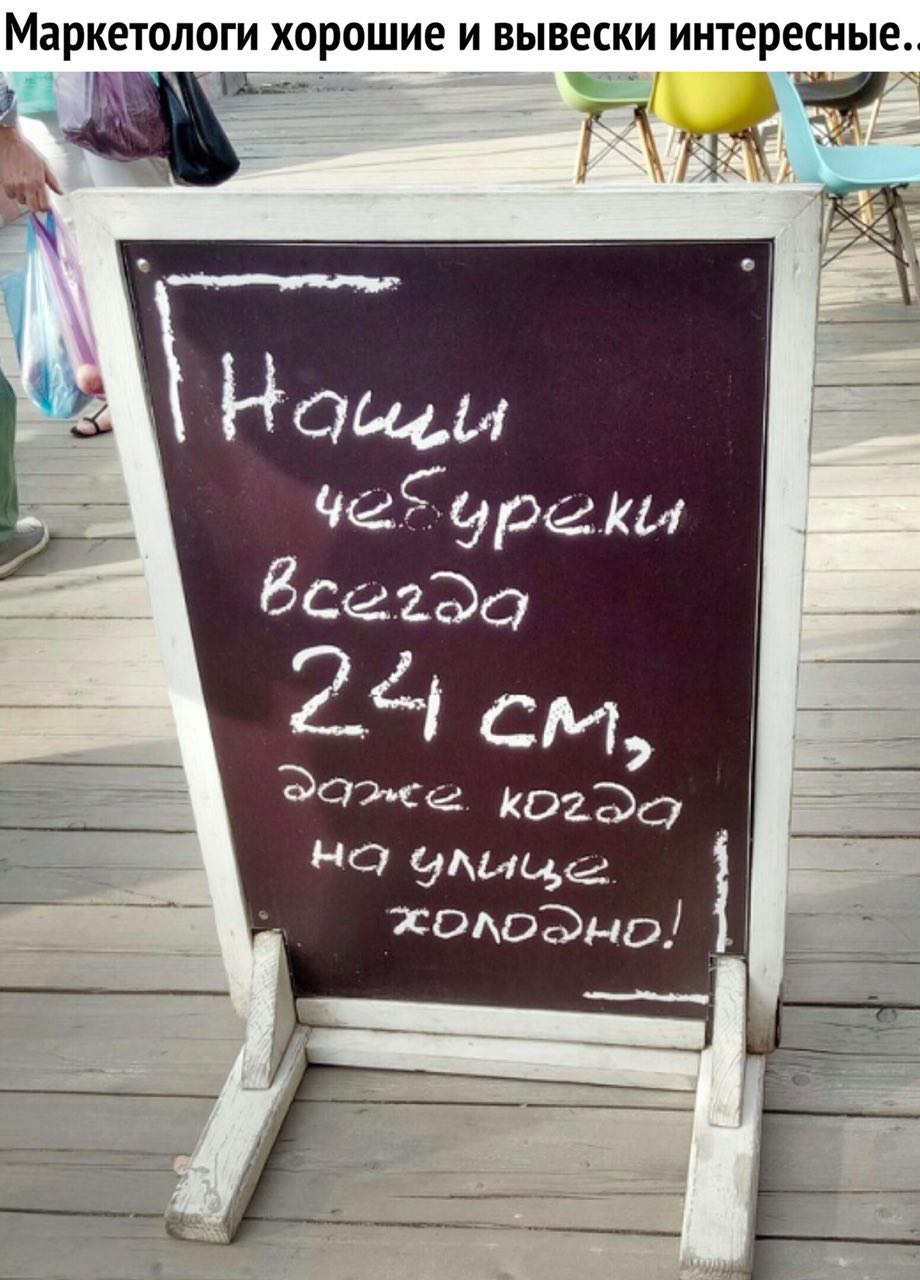 Маркетологи хорошие и вывески интересные..
Наши
чебуреки
всегда
24 см,
даже когда
на улице
холодно!